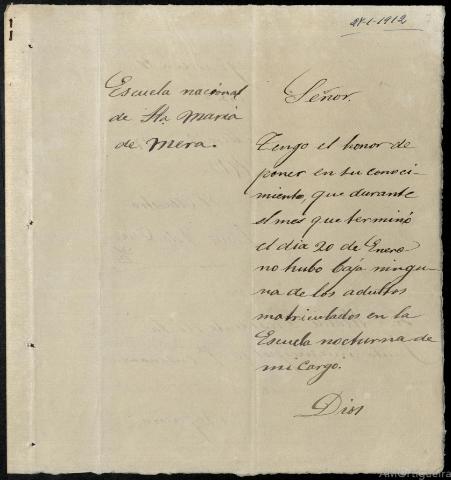 21-1-1912
Escuela nacional
de Sta María
de Mera.
Señor.
Tengo el honor de
poner en su conoci-
miento, que durante
el mes que terminó
el dia 20 de Enero
no hubo baja ningu-
na de los adultos
matriculados en la
Escuela nocturna de
mi cargo.
Dios